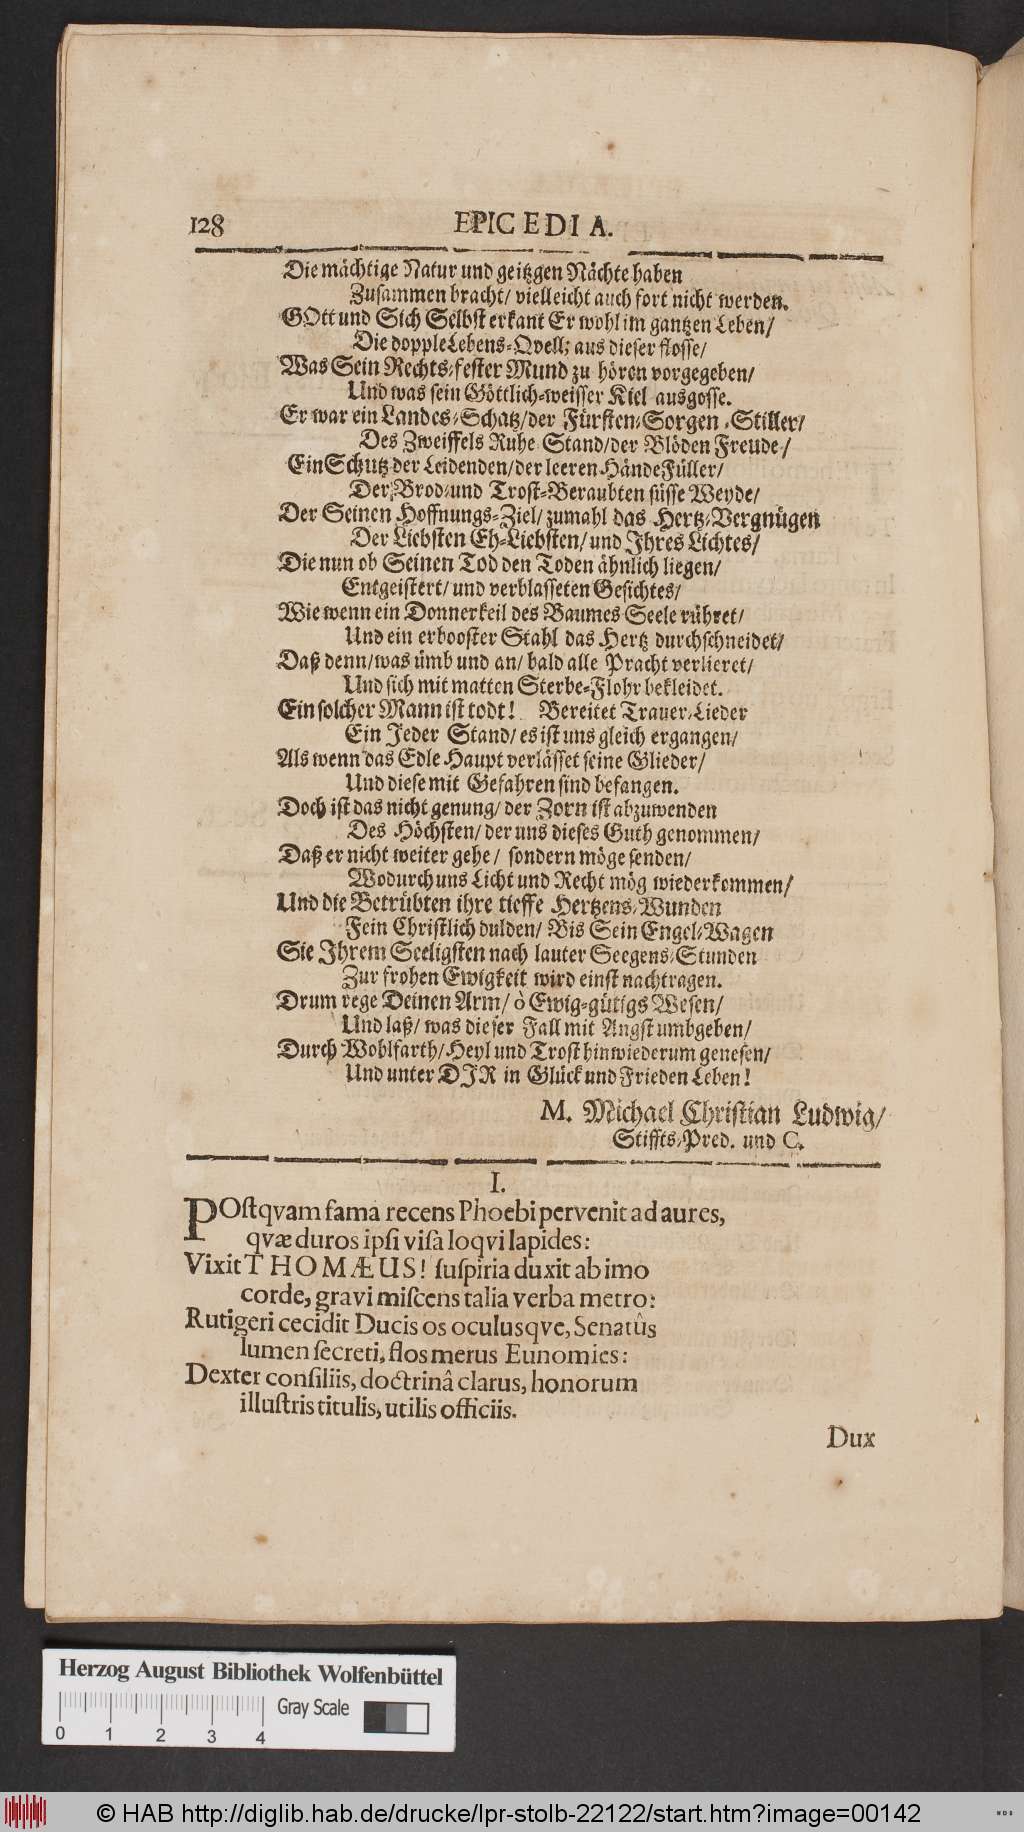 128 EPICEDIA.
Die mächtige Natur und geitzgen Nächte haben
Zusammen bracht/ vielleicht auch fort nicht werden.
GOtt und Sich Selbst erkant Er wohl im gantzen Leben/
Die dopple Lebens-Qvell; aus dieser flosse/
Was Sein Rechts-fester Mund zu hören vorgegeben/
Und was sein Göttlich-weisser Kiel ausgosse.
Er war ein Landes-Schatz/ der Fürsten-Sorgen-Stiller/
Des Zweiffels Ruhe-Stand/ der Blöden Freude/
Ein Schutz der Leidenden/ der leeren Hände Füller/
Der Brod- und Trost-Beraubten süsse Weyde/
Der Seinen Hoffnungs-Ziel/ zumahl das Hertz-Vergnügen
Der Liebsten Eh-Liebsten/ und Ihres Lichtes/
Die nun ob Seinen Tod den Toden ähnlich liegen/
Entgeistert/ und verblasseten Gesichtes/
Wie wenn ein Donnerkeil des Baumes Seele rühret/
Und ein erbooster Stahl das Hertz durchschneidet/
Daß denn/ was ümb und an/ bald alle Pracht verlieret/
Und sich mit matten Sterbe-Flohr bekleidet.
Ein solcher Mann ist todt! Bereitet Trauer-Lieder
Ein Jeder Stand/ es ist uns gleich ergangen/
Als wenn das Edle Haupt verlässet seine Glieder/
Und diese mit Gefahren sind befangen.
Doch ist das nicht genung/ der Zorn ist abzuwenden
Des Höchsten/ der uns dieses Guth genommen/
Daß er nicht weiter gehe/ sondern möge senden/
Wodurch uns Licht und Recht mög wiederkommen/
Und die Betrübten ihre tieffe Hertzens-Wunden
Fein Christlich dulden/ Bis Sein Engel-Wagen
Sie Ihrem Seeligsten nach lauter Seegens-Stunden
Zur frohen Ewigkeit wird einst nachtragen.
Drum rege Deinen Arm/ ò Ewig-gütigs Wesen/
Und laß/ was dieser Fall mit Angst umbgeben/
Durch Wohlfarth/ Heyl und Trost hinwiederum genesen/
Und unter DJR in Glück und Frieden Leben!
M. Michael Christian Ludwig/
Stiffts-Pred. und C.
I.
POstqvam fama recens Phoebi pervenit ad aures,
qvæ duros ipsi visa loqvi lapides:
Vixit THOMÆUS! suspiria duxit ab imo
corde, gravi miscens talia verba metro:
Rutigeri cecidit Ducis os oculusqve, Senatûs
lumen secreti, flos merus Eunomies:
Dexter consiliis, doctrinâ clarus, honorum
illustris titulis, utilis officiis.
Dux
Herzog August Bibliothek Wolfenbüttel
Gray Scale
0 1 2 3 4
© HAB http://diglib.hab.de/drucke/lpr-stolb-22122/start.htm?image=00142